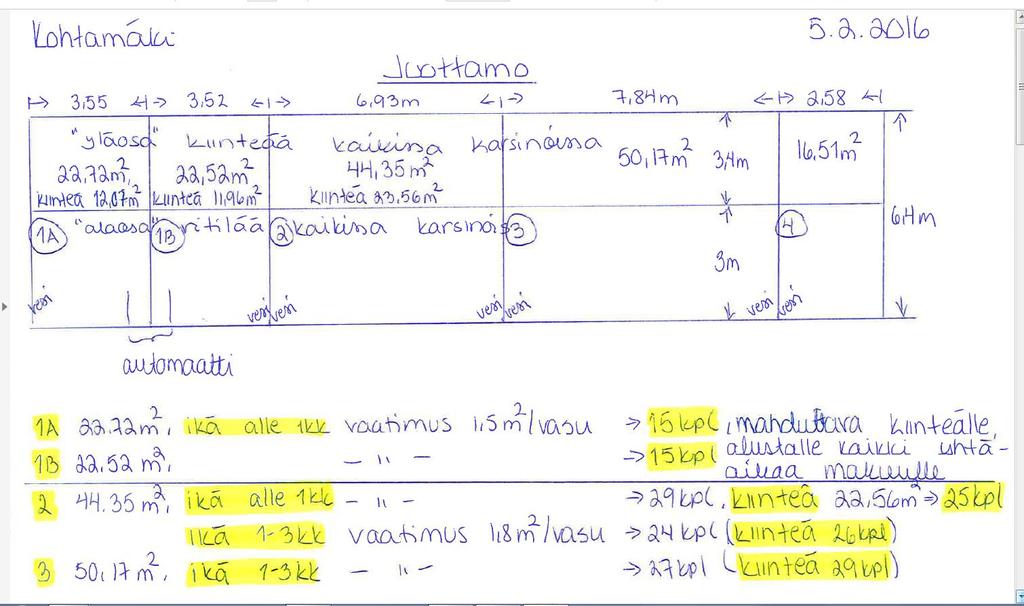 Kohtamäki 5.2.2016
Juottamo
3,55 3,52 6,93m 7,84m 2,58
"yläosa" kiinteää kaikissa karsinoissa
22,72m², 22,52m² 44,35m² 50,17m² 3,4m 16,51m²
kiinteä 12,07m² kiinteä 11,96m² kiinteä 23,56m²
6,4m
1A "alaosa" 1B ritilää 2 kaikissa karsinois 3 4
3m
vesi vesi vesi vesi vesi vesi vesi
automaatti
1A 22.72m², ikä alle 1kk vaatimus 1,5m²/vasu → 15kpl, mahduttava kiinteälle
1B 22,52 m², – " – → 15kpl alustalle kaikki yhtä-
aikaa makuulle
2 44.35m², ikä alle 1kk – " – → 29kpl, kiinteä 22,56m² ⇒ 25kpl
ikä 1-3kk vaatimus 1,8m²/vasu → 24kpl (kiinteä 26kpl)
3 50,17m², ikä 1-3kk – " – → 27kpl (kiinteä 29kpl)